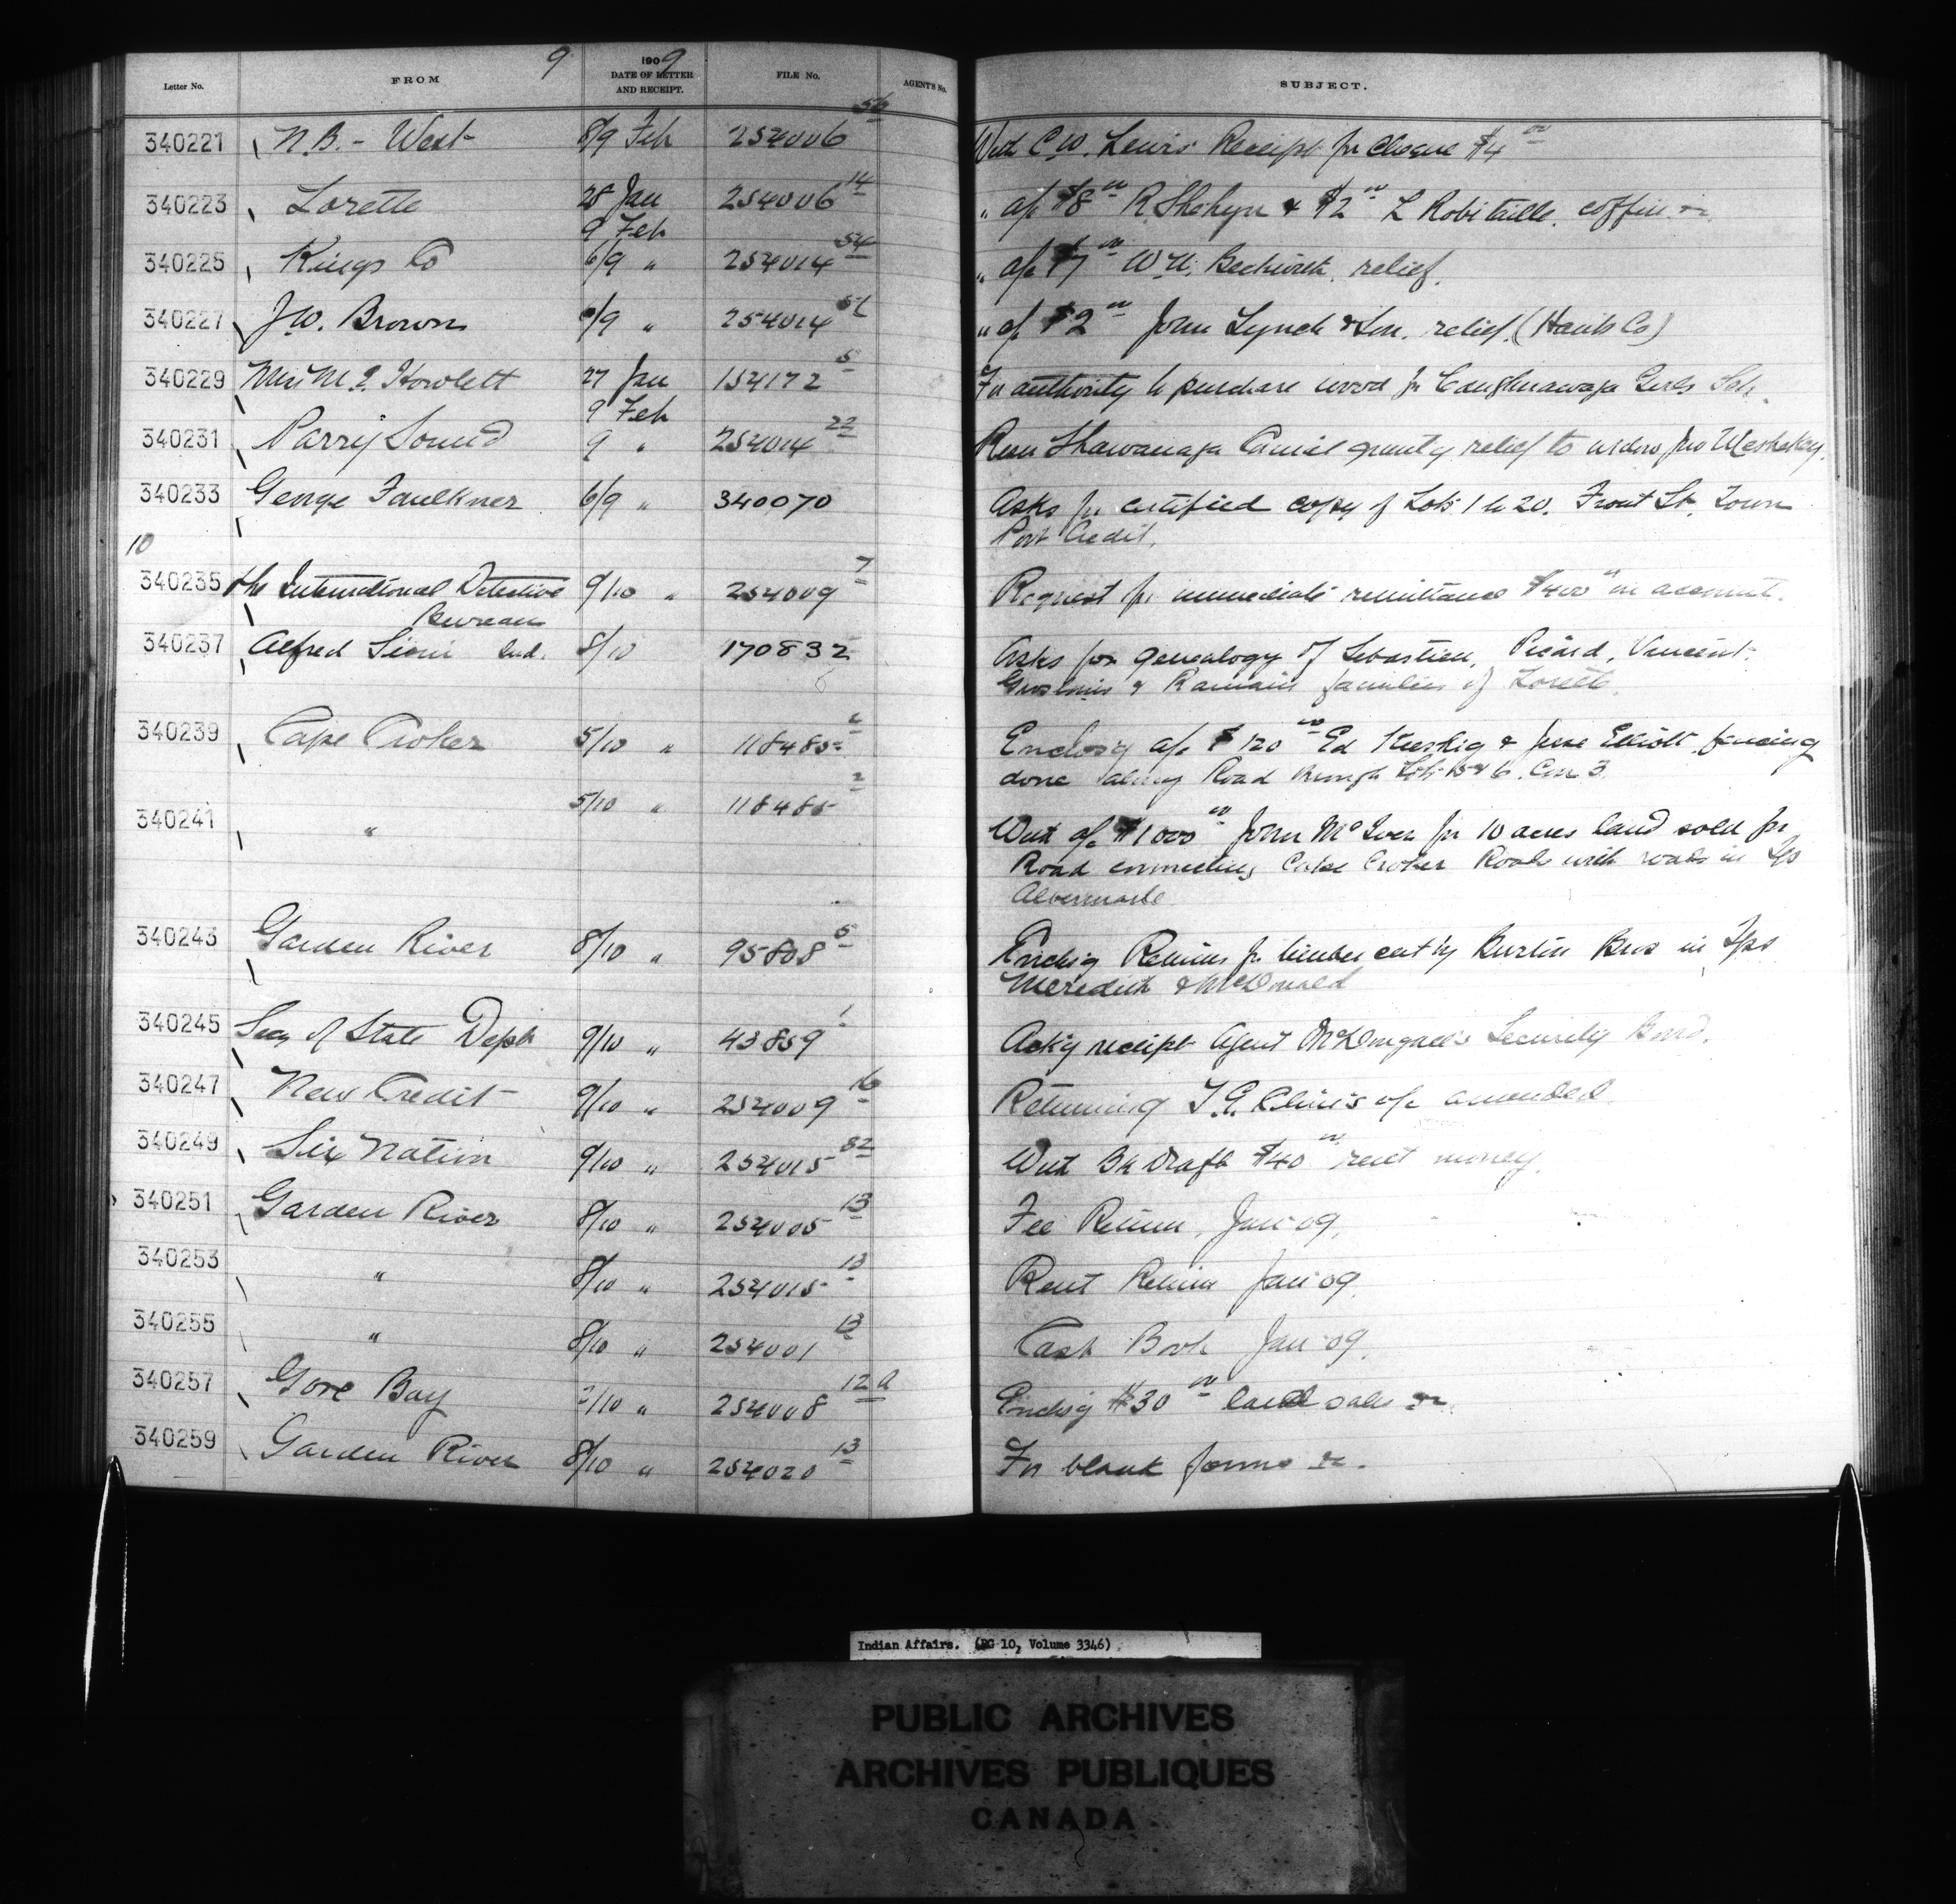 9 1909
Letter No. FROM DATE OF LETTER AND RECEIPT. FILE No. AGENT'S No. SUBJECT.
340221 N.B. - West 8/9 Feb 254006 56 With C.W. Lewis Receipt for Cheque $4 00
340223 Lorette 28 Jan 254006 14 " a/c $8 00 R Shehyn & $2 00 L Robitaille, coffin &c
9 Feb
340225 Kings Co 6/9 " 254014 54 " a/c $7 00 relief.
340227 J.W. Brown /9 " 254014 " a/c $2 00 John Lynch & Son, relief. (Hants Co)
340229 Mrs M. Howlett 27 Jan 154172 5 For authority to purchase wood for Caughnawaga Girls Sch.
9 Feb
340231 Parry Sound 9 " 254014 22 Shawanaga granty relief to widow Jno
340233 George Faulkner 6/9 " 340070 Asks for certified copy of Lots 1 to 20. Front St. Town
Port Credit.
10
340235 The International Detective 9/10 " 254009 7 Request for immediate remittance $400 00 on account.
Bureau
340237 Alfred Sioui Ind. 8/10 170832 Asks for genealogy of Sebastien, Picard, Vincent,
Groslouis & Romain families of Lorette.
340239 Cape Croker 5/10 " 118485 2 Enclosg a/c $120 00 Ed & Jesse Elliott fencing
done along Road through Lots 15 & 6. Con 3.
5/10 " 118485 2
340241 " With a/c $1000 00 John McIver for 10 acres land sold for
Road connecting Cape Croker Road with roads in Tps
Albermarle
340243 Garden River 8/10 " 95808 5 Enclsg Returns for timber cut by Burton Bros in Tps
Meredith & McDonald
340245 Secy of State Dept 9/10 " 43859 1 Ackg receipt Agent McDougall's Security Bond.
340247 New Credit 9/10 " 254009 16 Returning a/c amended
340249 Six Nation 9/10 " 254015 32 With Bk Draft $40 00 rent money.
340251 Garden River 8/10 " 254005 13 Fee Return, Jan 09.
340253 " 8/10 " 254015 13 Rent Return Jan 09.
340255 " 8/10 " 254001 13 Cash Book Jan 09.
340257 Gore Bay /10 " 254008 12a Enclsg $30 00 land sales &c.
340259 Garden River 8/10 " 254020 13 For blank forms &c.
Indian Affairs. (RG 10, Volume 3346)
PUBLIC ARCHIVES
ARCHIVES PUBLIQUES
CANADA